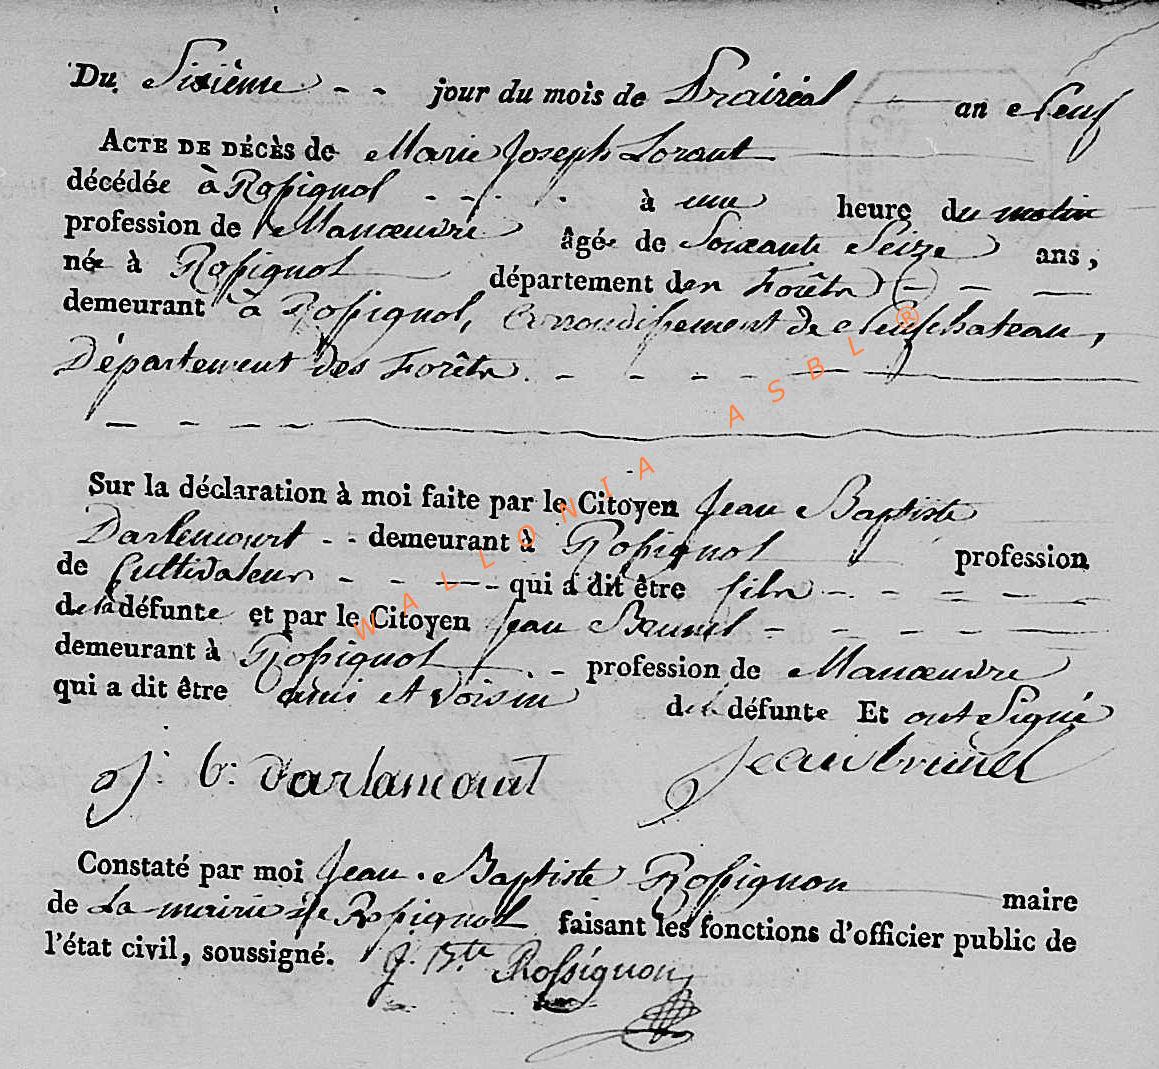 Du Sixième - - jour du mois de Prairéal an Neuf
ACTE DE DÉCÈS de Marie Joseph Lorant
décédée à Roſsignol - - - à une heure du matin
profession de Manœuvre âgée de Soixante Seize ans,
née à Roſsignol département des Forêts - -
demeurant à Roſsignol, arrondiſsement de Neufchateau,
Département des Forêts. - - - - -
Sur la déclaration à moi faite par le Citoyen Jean Baptiste
Darlemourt - - demeurant à Roſsignol profession
de Cultivateur - - - - qui a dit être fils - - - - -
de la défunte et par le Citoyen Jean - - - - -
demeurant à Roſsignol - profession de Manœuvre
qui a dit être ami et voisin de la défunte Et ont Signé
J. b: darlamourt Jean brunel
Constaté par moi Jean Baptiste Roſsignon maire
de La mairie de Roſsignol faisant les fonctions d'officier public de
l'état civil, soussigné. J. Bte Roſsignon
WALLONIA ASBL ®